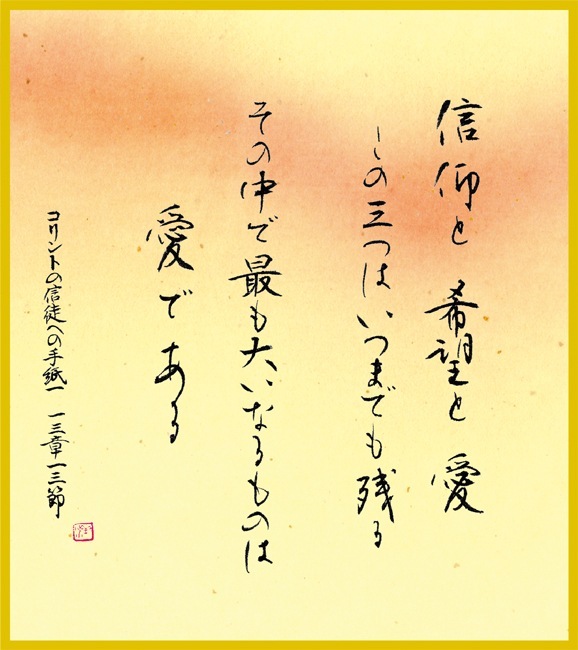 信仰と 希望と 愛
この三つはいつまでも残る
その中で最も大いなるものは
愛である
コリントの信徒への手紙一 一三章一三節